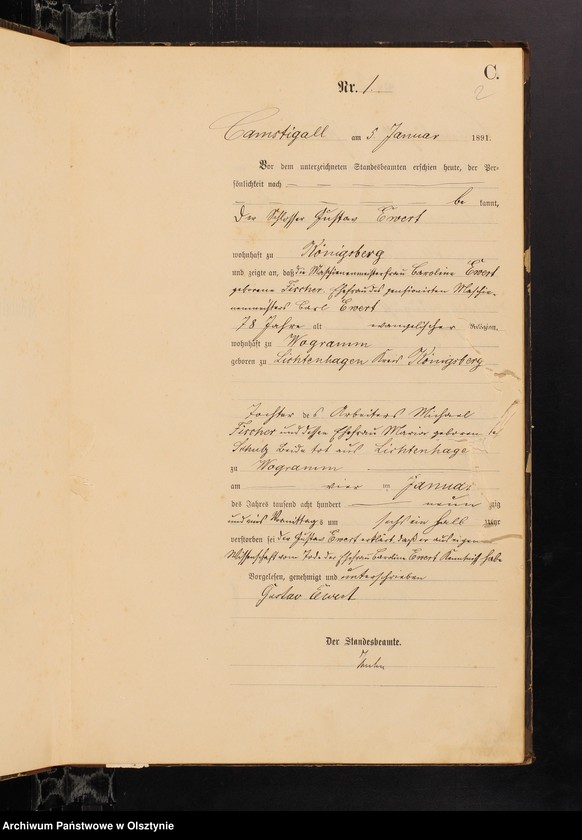 C.
2
Nr. 1
Camstigall am 5. Januar 1891.
Vor dem unterzeichneten Standesbeamten erschien heute, der Per-
sönlichkeit nach
be kannt,
der Schlosser Gustav Ewert
wohnhaft zu Königsberg
und zeigte an, daß die Maschienenmeisterfrau Caroline Ewert
geborene Fischer Ehefrau des pensionirten Maschie-
nenmeisters Carl Ewert
78 Jahre alt evangelischer Religion,
wohnhaft zu Wogramm
geboren zu Lichtenhagen Kreis Königsberg
Tochter des Arbeiters Michael
Fischer und dessen Ehefrau Marie geborene
Schulz Beide tot aus Lichtenhage
zu Wogramm
am vier ten Januar
des Jahres tausend acht hundert neun zig
und eins Vormittags um sechs ein halb Uhr
verstorben sei der Gustav Ewert erklärt, daß er aus eigen
Wissenschaft vom Tode der Ehefrau Caroline Ewert Kenntniß habe
Vorgelesen, genehmigt und unterschrieben
Gustav Ewert
Der Standesbeamte.
Archiwum Państwowe w Olsztynie